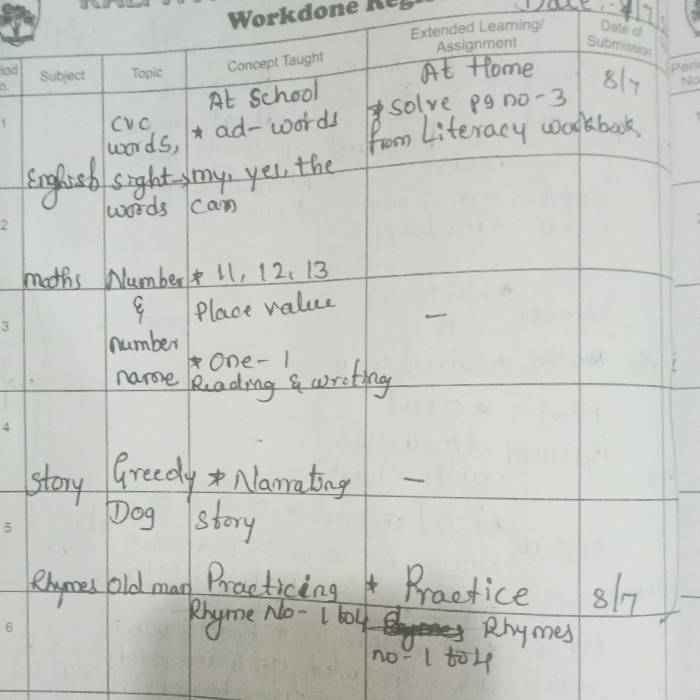 Workdone Reg
Date:- 4/7
Subject Topic Concept Taught Extended Learning/ Assignment Date of Submission
At School At Home 8/7
1 CVC words, * ad-words * solve pg no-3 from Literacy workbook
English sight → my, yes, the
words can
2
maths Number * 11, 12, 13
& Place value –
3
number * One-1
name Reading & writing
4
Story Greedy * Narrating –
Dog story
5
Rhymes Old man Practicing * Practice 8/7
Rhyme No-1 to 4 Rhymes
6
no-1 to 4